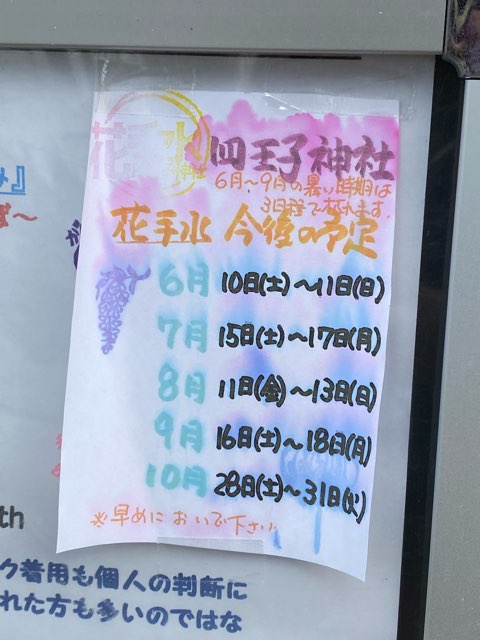 花手水
四王子神社
6月〜9月の暑い時期は
3日程で枯れます.
花手水 今後の予定
6月 10日(土)〜11日(日)
7月 15日(土)〜17日(月)
8月 11日(金)〜13日(日)
9月 16日(土)〜18日(月)
10月 28日(土)〜31日(火)
※早めにおいで下さい
th
ク着用も個人の判断に
れた方も多いのではな